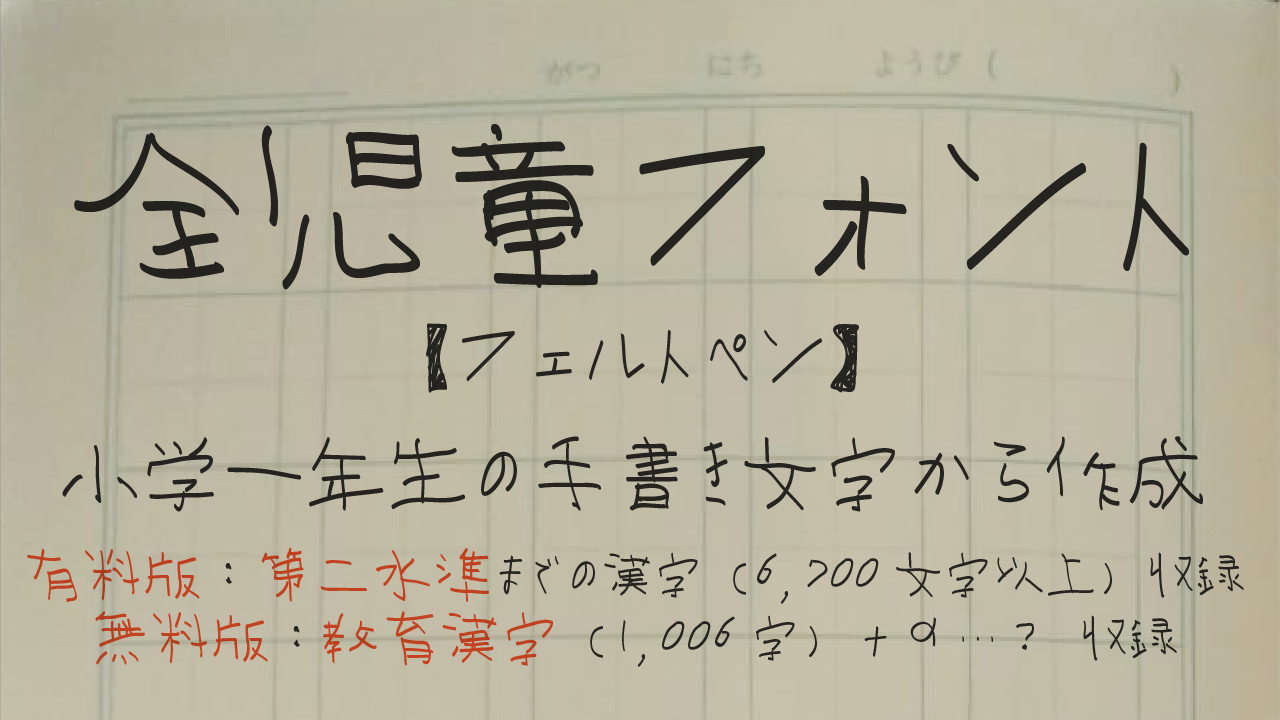 がつ にち ようび ( )
全児童フォント
【フェルトペン】
小学一年生の手書き文字から作成
有料版：第二水準までの漢字（6,700文字以上）収録
無料版：教育漢字（1,006字）＋α…？収録